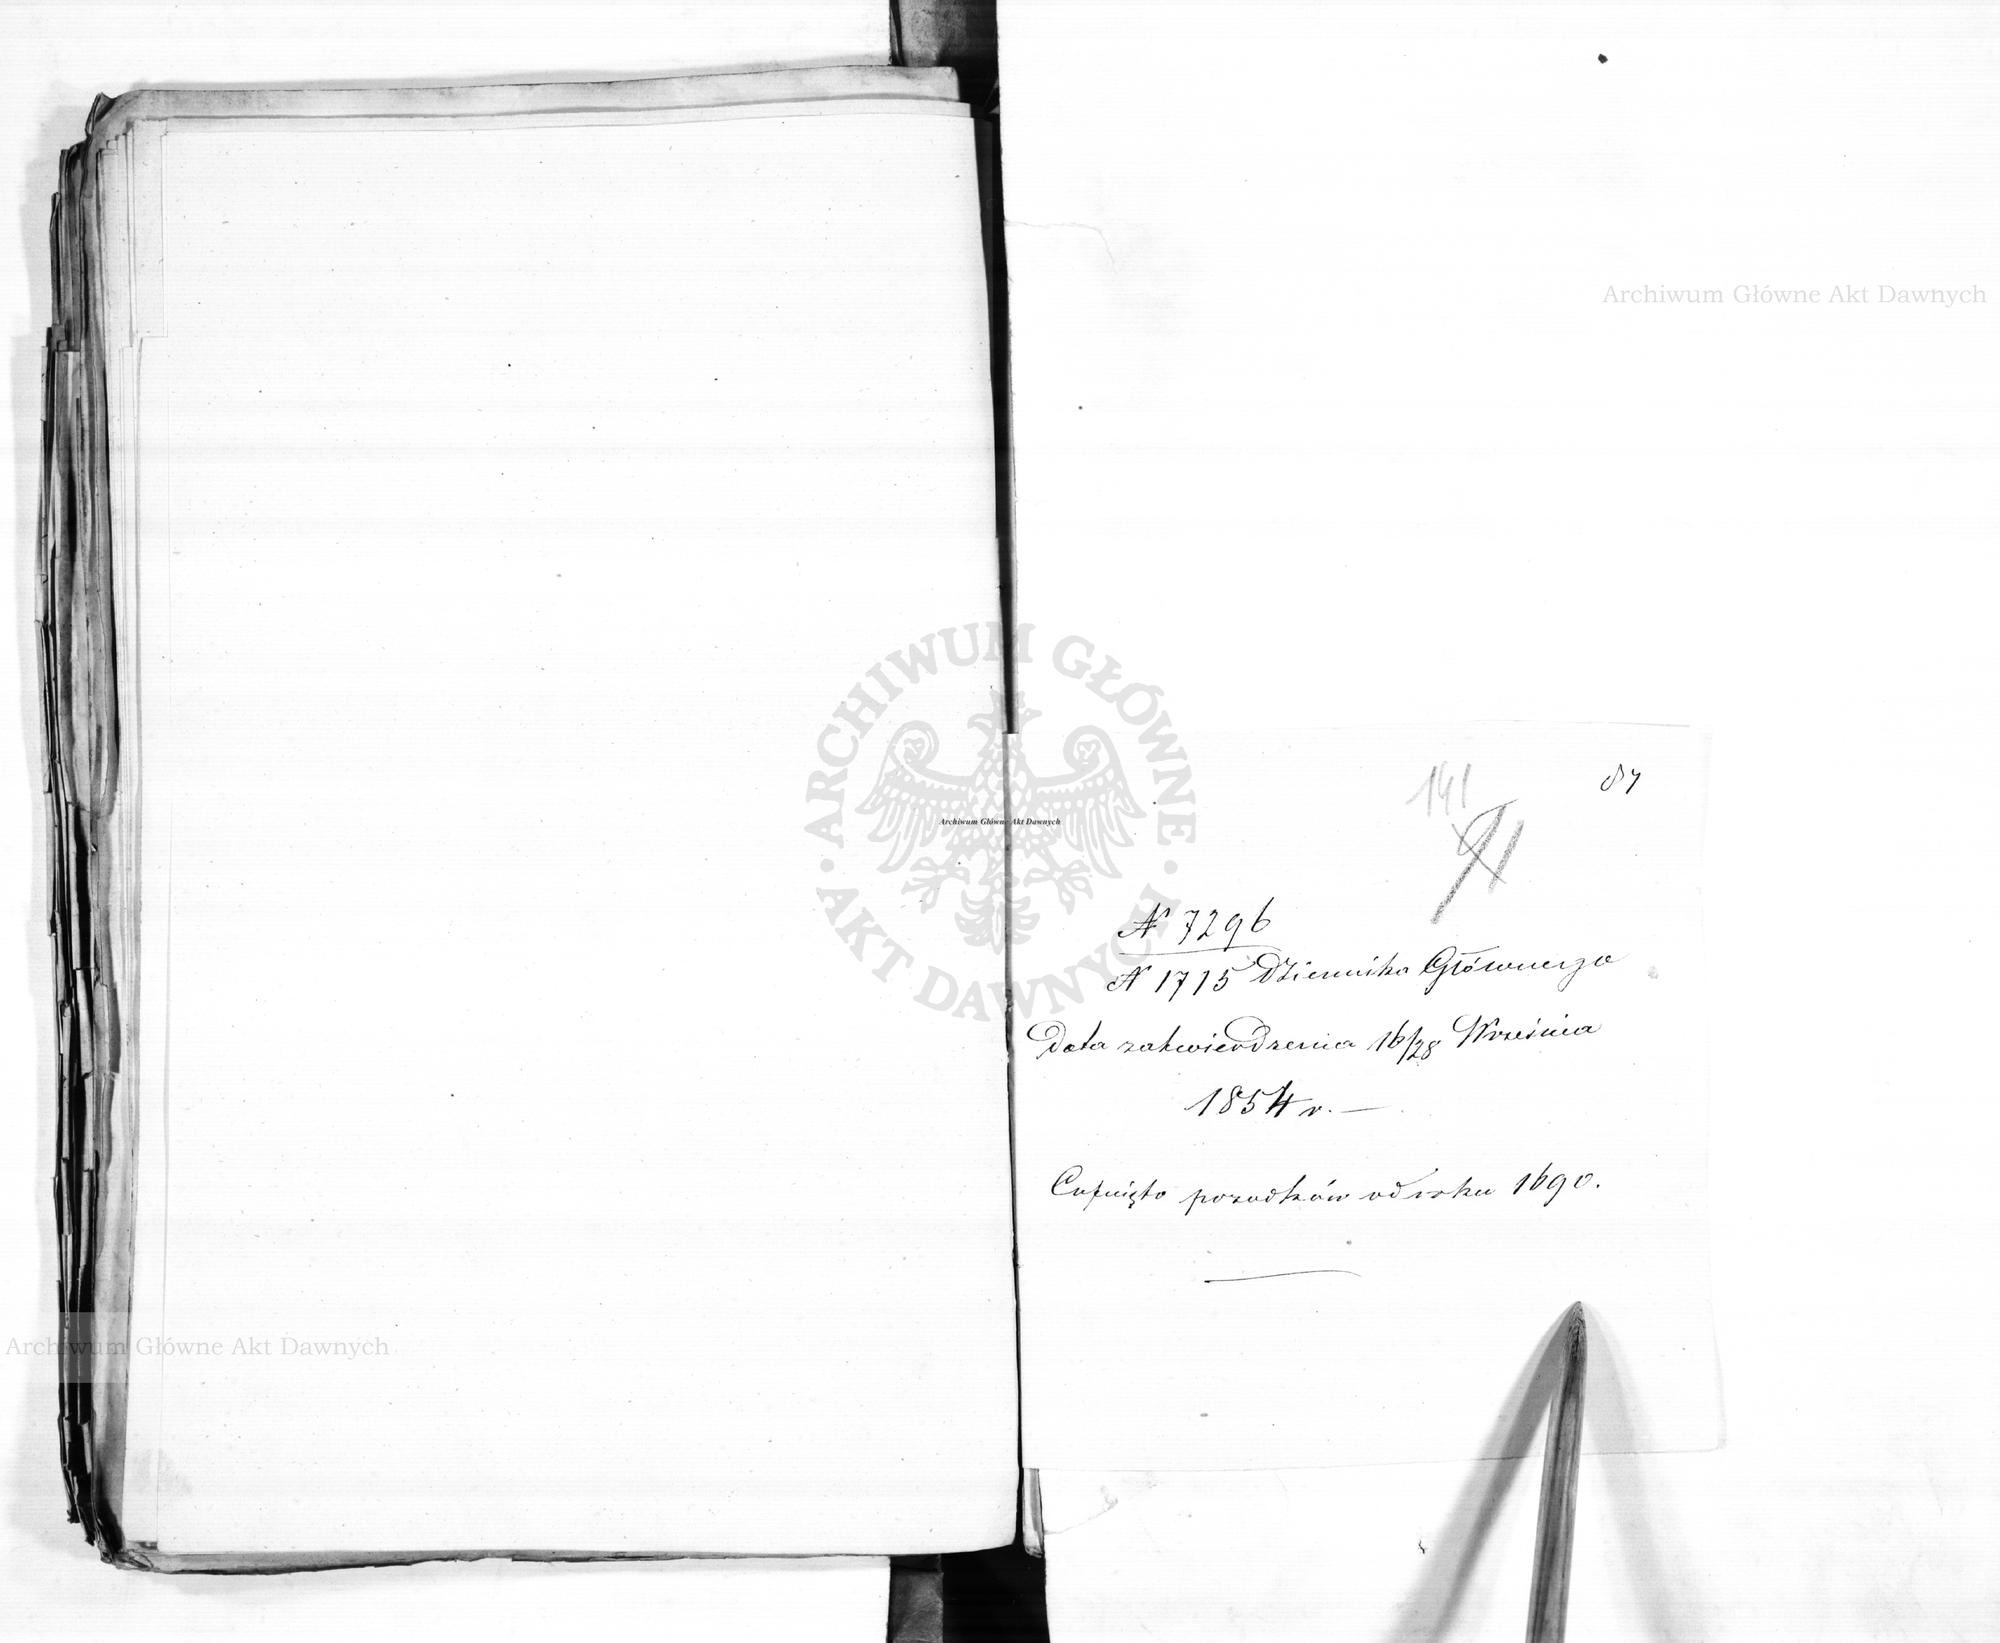 Archiwum Główne Akt Dawnych
ARCHIWUM GŁÓWNE AKT DAWNYCH
Archiwum Główne Akt Dawnych
141
87
91
N 7296
N 1715 Dziennika Głównego
Data zatwierdzenia 16/28 Września
1854 r. —
Cofnięto przodków od roku 1690.
Archiwum Główne Akt Dawnych